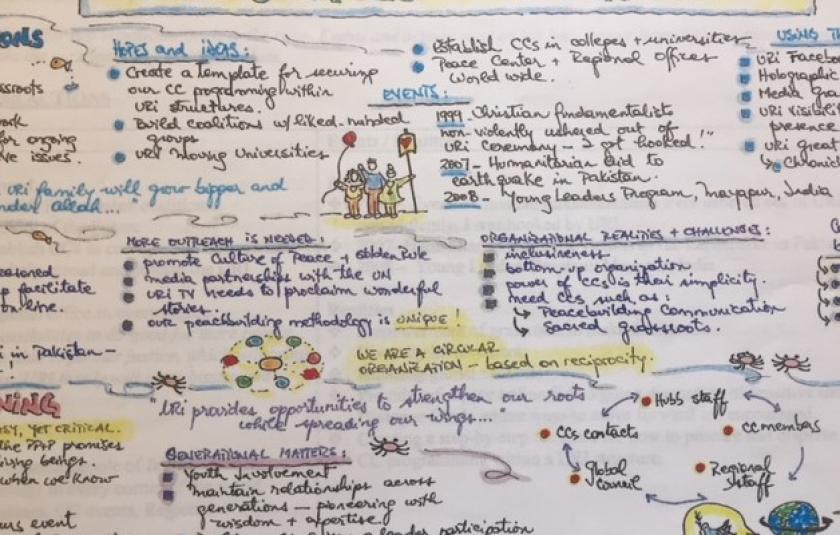 ONS
assroots
ork
for ongoing
ve issues.
URi family will grow bigger and
under allah..."
HOPES and IDEAS:
Create a template for securing
our CC programming within
URi structures.
Build coalitions w/ liked-minded
groups
URI Young Universities
Establish CCs in colleges + universities
Peace Center + Regional Offices
World wide.
EVENTS:
1999 - Christian fundamentalists
non-violently ushered out of
URi Ceremony - I got hooked!"
2007 - Humanitarian aid to
earthquake in Pakistan.
2008 - Young Leaders Program, Mayapur, India
USING TH
URi Faceboo
Holographic
Media gra
URi visibili
presence
URi great
Chronic
easoned
p facilitate
on-line.
i in Pakistan -
!
MORE OUTREACH IS NEEDED:
promote Culture of Peace + Golden Rule
media partnerships with the UN
URi TV needs to proclaim wonderful
stories.
our peacebuilding methodology is UNIQUE!
ORGANIZATIONAL REALITIES + CHALLENGES:
inclusiveness
bottom-up organization
power of CCs is their simplicity.
need CCs such as:
Peacebuilding Communication
Sacred grassroots.
WE ARE A CIRCULAR
ORGANIZATION - based on reciprocity.
NING
SY, YET CRITICAL.
the PPP promises
iving beings.
when we know
urs event
"URi provides opportunities to strengthen our roots
while spreading our wings..."
GENERATIONAL MATTERS:
Youth Involvement
maintain relationships across
generations - pioneering with
wisdom + expertise
leader participation
Hubb staff
CCs contacts
CC members
Global
Council
Regional
Staff